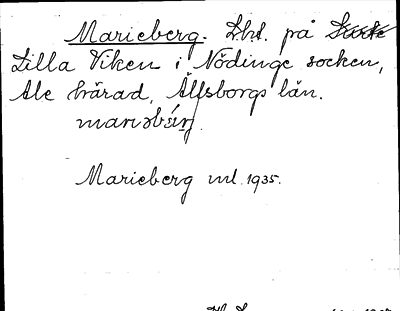 Marieberg. Lht. på
Lilla Viken i Nödinge socken,
Ale härad, Älfsborgs län.
Marieberg ml. 1935.